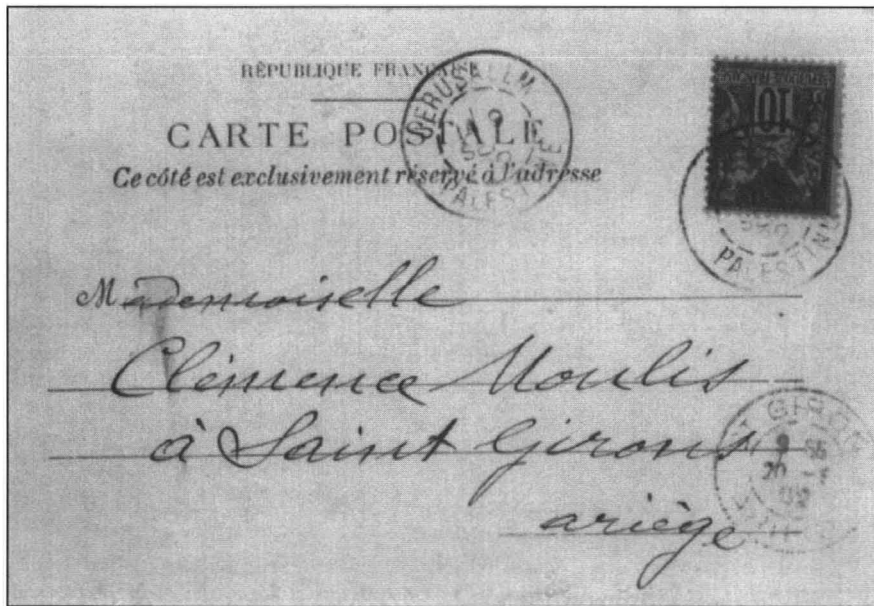 RÉPUBLIQUE FRANÇAISE
CARTE POSTALE
Ce côté est exclusivement réservé à l'adresse
JERUSALEM
PALESTINE
10
PALESTINE
Mademoiselle
Clémence Moulis
à Saint Girons
ariège
GIRONS
20